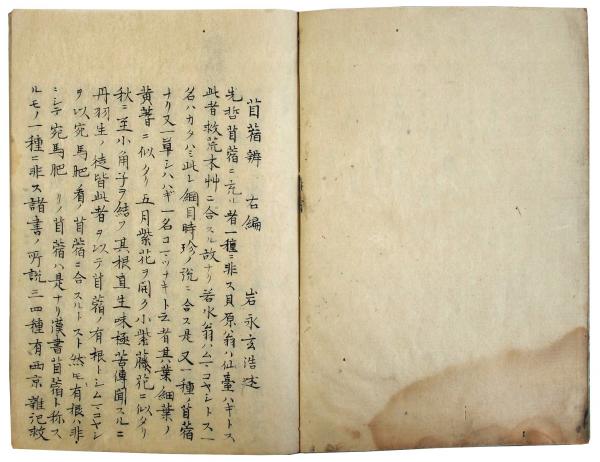 苜蓿辨 右編 岩永玄浩述
先哲苜蓿ニ充ル者一種ニ非ス貝原翁ハ仙臺ハギトス
此者救荒本艸ニ合スル故ナリ若水翁ハムマコヤシトス一
名ハカタハミ此レ綱目時珍ノ説ニ合ス是又一種ノ苜蓿
ナリ又一草シハハギ一名コマツナキト云者其葉ノ細葉ノ
黄蓍ニ似タリ五月紫花ヲ開ク小紫藤花ニ似タリ
秋ニ至小角子ヲ結フ其根直生味極苦傳聞スルニ
丹羽生ノ徒皆此者ヲ以テ苜蓿ノ有根トシムマコヤシ
ヲ以宛馬肥ノ苜蓿ニ合スルトスト然モ有根ハ非
ニシテ宛馬肥リノ苜蓿ハ是ナリ漢書苜蓿ト称ス
ルモノ一種ニ非ス諸書ノ所説三四種有西京雜記救